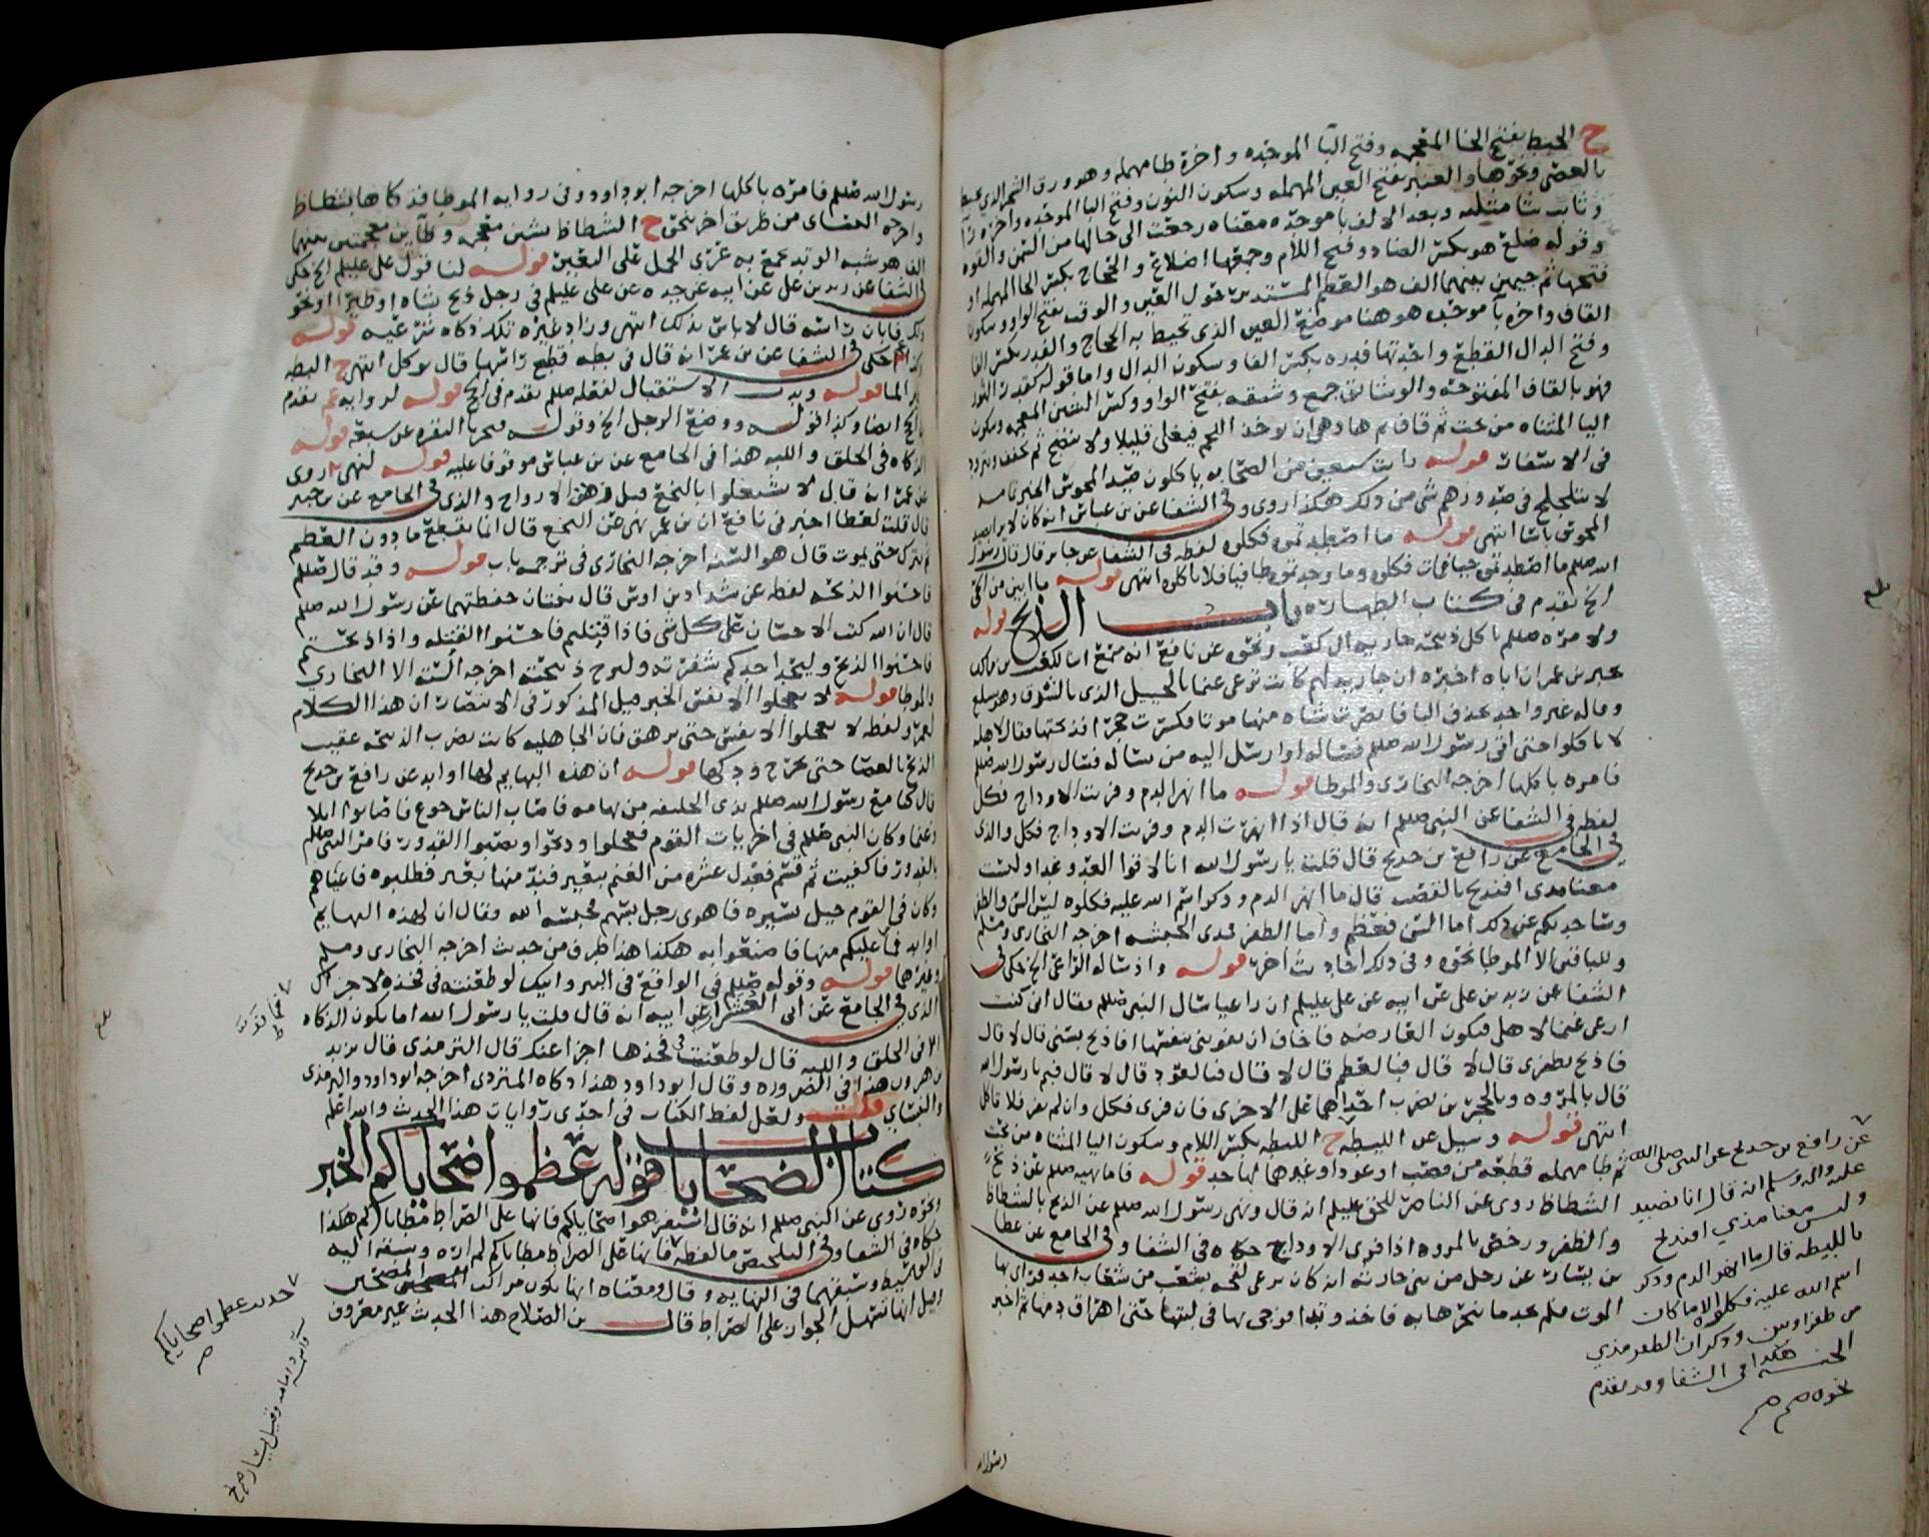 ح الخبط بفتح الخا المعجمه وفتح البا الموحده واخره طا مهمله وهو ورق الشجر الذي يخبط
بالعصى ونحوها والعنبر بفتح العين المهمله وسكون النون وفتح البا الموحده واخره را
وثابت ثا مثلثه وبعد الالف با موحده معناه رجعت الى حالها من السمن والقوه
وقوله ضلع هو بكسر الضاد وفتح اللام وجمعها اضلاع والحجاج بكسر الحا المهمله او
فتحها ثم جيمين بينهما الف هو العظم المستدير حول العين والوقب بفتح الواو وسكون
القاف واخره با موحده هو هنا موضع العين الذي تحيط به الحجاج والفدر بكسر الفا
وفتح الدال القطع واحدتها فدره بكسر الفا وسكون الدال واما قوله كقدر الثور
فهو بالقاف المفتوحه والوشائق جمع وشيقه بفتح الواو وكسر الشين المعجمه وسكون
اليا المثناه من تحت ثم قاف ثم ها وهي ان يوخذ اللحم فيغلى قليلا ولا ينضج ثم يجفف ويتزود
في الاسفار قوله رايت سبعين من الصحابه ياكلون صيد المجوس الخبر تمامه
لا يتلجلج في صدورهم شي من ذلك هكذا روى وفي الشفا عن بن عباس انه كان لا يرا بصيد
المجوس باسا انتهى قوله ما اصطدتموه فكلوه لفظه في الشفا عن جابر قال قال رسول
الله صلعم ما اصطدتموه حيا فمات فكلوه وما وجدتموه طافيا فلا تاكلوه انتهى قوله ما ابين من الحي
الخ تقدم في كتاب الطهاره باب الذبح قوله
ولامره صلعم باكل ذبيحه جاريه ال كعب ونحوه عن نافع انه سمع ابنا لكعب بن مالك
يخبر بن عمر ان اباه اخبره ان جاريه لهم كانت ترعى غنما بالجبيل الذي بالسوق وهو بسلع
وقاله غير واحد بحذف اليا فابصرت بشاه منها موتا فكسرت حجرا فذبحتها فقال لاهله
لا تاكلوا حتى اتي رسول الله صلعم فسئاله او ارسل اليه من يساله فسال رسول الله صلعم
فامره باكلها اخرجه البخاري والموطا قوله ما انهر الدم وفرت الاوداج فكل
لفظه في الشفا عن النبي صلعم انه قال اذا انهرت الدم وفريت الاوداج فكل والذي
في الجامع عن رافع بن خديج قال قلت يا رسول الله انا لاقوا العدو غدا وليست
معنا مدى افنذبح بالقصب قال ما انهر الدم وذكر اسم الله عليه فكلوه ليس السن والظفر
وساحدثكم عن ذلك اما السن فعظم واما الظفر فمدى الحبشه اخرجه البخاري ومسلم
وللباقين الا الموطا نحوه وفي ذلك احاديث اخر قوله واذ ساله الراعي الخ حكى في
الشفا عن زيد بن علي عن ابيه عن علي عليلم ان راعيا سال النبي صلعم فقال اني كنت
ارعى غنما لاهلي فتكون العارضه فاخاف ان تفوتني بنفسها افاذبح بسني قال لا قال
فاذبح بظفري قال لا قال فبالعظم قال لا قال فبالعود قال لا قال فبم يا رسول الله
قال بالمروه وبالحجرين تضرب احداهما على الاخرى فان فرى فكل وان لم يفر فلا تاكل
انتهى قوله وسيل عن الليطه ح الليطه بكسر اللام وسكون اليا المثناه من تحت
ثم طا مهمله قطعه من قصب او عود او غيرها لها حد قوله فاما نهيه صلعم عن ذبح
الشظاظ روى عن الناصر للحق عليلم انه قال ونهى رسول الله صلعم عن الذبح بالشظاظ
والظفر ورخص بالمروه اذا فرى الاوداج حكاه في الشفا وفي الجامع عن عطا
بن يسار عن رجل من بني حارثه انه كان يرعى لقحه بشعب من شعاب احد فراى بها
الموت فلم يجد ما ينحرها به فاخذ وتدا فوجى بها في لبتها حتى اهراق دمها ثم اخبر
رسول الله
عن رافع بن خديج عن النبي صلى الله
عليه واله وسلم انه قال انا نصيد
وليس معنا مدي افنذبح
بالليطه قال ما انهر الدم وذكر
اسم الله عليه فكلوه الا ما كان
من ظفر او سن وذكر ان الظفر مدي
الحبشه هكذا في الشفا وقد تقدم
نحوه صح
رسول الله صلعم فامره باكلها اخرجه ابو داود وفي روايه الموطا فذكاها بشظاظ
واخرجه النسائي من طريق اخر بنحوه ح الشظاظ بشين معجمه وظائين معجمتين بينهما
الف هو شبه الوتد تجمع به عرى الحمل على البعير قوله لنا قول علي عليلم الخ حكى
في الشفا عن زيد بن علي عن ابيه عن جده عن علي عليلم في رجل ذبح شاه او طيرا او نحو
ذلك فابان راسه قال لا باس بذلك انتهى وزاد غيره تلك ذكاه شرعيه قوله
حكى في الشفا عن بن عمر انه قال في بطه قطع راسها قال توكل انتهى ح البطه
طير الما قوله وندب الاستقبال لفعله صلعم تقدم في الحج قوله لروايه عم تقدم
في الحج ايضا وكذا قوله ووضع الرجل الخ وقوله نحرنا البقره عن سبعه قوله
الذكاه في الحلق واللبه هذا في الجامع عن بن عباس موقوفا عليه قوله لنهي روى
عن عمر انه قال لا تنخعوا بالنخع قبل زهق الارواح والذي في الجامع عن بن جبير
قال قلت لعطا اخبرني نافع ان بن عمر نهى عن النخع قال انما يقطع ما دون العظم
ثم يترك حتى يموت قال هو السنه اخرجه البخاري في ترجمه باب قوله وقد قال صلعم
فاحسنوا الذبحه لفظه عن شداد بن اوس قال ثنتان حفظتهما عن رسول الله صلعم
قال ان الله كتب الاحسان على كل شي فاذا قتلتم فاحسنوا القتله واذا ذبحتم
فاحسنوا الذبح وليحد احدكم شفرته وليرح ذبيحته اخرجه السته الا البخاري
والموطا قوله لا تعجلوا الانفس الخبر قيل المذكور في الانتصار ان هذا الكلام
لعمر ولفظه لا تعجلوا الانفس حتى تزهق فان الجاهليه كانت تضرب الذبيحه عقيب
الذبح بالعصا حتى تخرج روحها قوله ان هذه البهايم لها اوابد عن رافع بن خديج
قال كنا مع رسول الله صلعم بذي الحليفه من تهامه فاصاب الناس جوع فاصابوا ابلا
وغنما وكان النبي صلعم في اخريات القوم فعجلوا وذبحوا ونصبوا القدور فامر النبي صلعم
بالقدور فاكفيت ثم قسم فعدل عشره من الغنم ببعير فند منها بعير فطلبوه فاعياهم
وكان في القوم خيل يسيره فاهوى رجل بسهم فحبسه الله فقال ان لهذه البهايم
اوابد فما غلبكم منها فاصنعوا به هكذا هذا طرف من حديث اخرجه البخاري ومسلم
وغيرهما قوله وقوله صلعم في الواقع في البير وابيك لو طعنته في فخذه لاجزاك
الذي في الجامع عن ابي العشرا عن ابيه انه قال قلت يا رسول الله اما تكون الذكاه
الا في الحلق واللبه قال لو طعنت في فخذها اجزا عنك قال الترمذي قال يزيد
بن هرون هذا في الضروره وقال ابو داود هذا ذكاه المتردي اخرجه ابو داود والترمذي
والنسائي قلت ولعل لفظ الكتاب في احدى روايات هذا الحديث والله اعلم
كتاب الضحايا قوله عظموا ضحاياكم الخبر
روى عن النبي صلعم انه قال استفرهوا ضحاياكم فانها على الصراط مطاياكم هكذا
حكاه في الشفا وفي التلخيص ما لفظه فانها على الصراط مطاياكم لم اره وسبقه اليه
في الوسيط وسبقهما في النهايه وقال ومعناه انها تكون مراكب المضحين
وقيل انها تسهل الجواز على الصراط قال بن الصلاح هذا الحديث غير معروف
حديث عظموا ضحاياكم